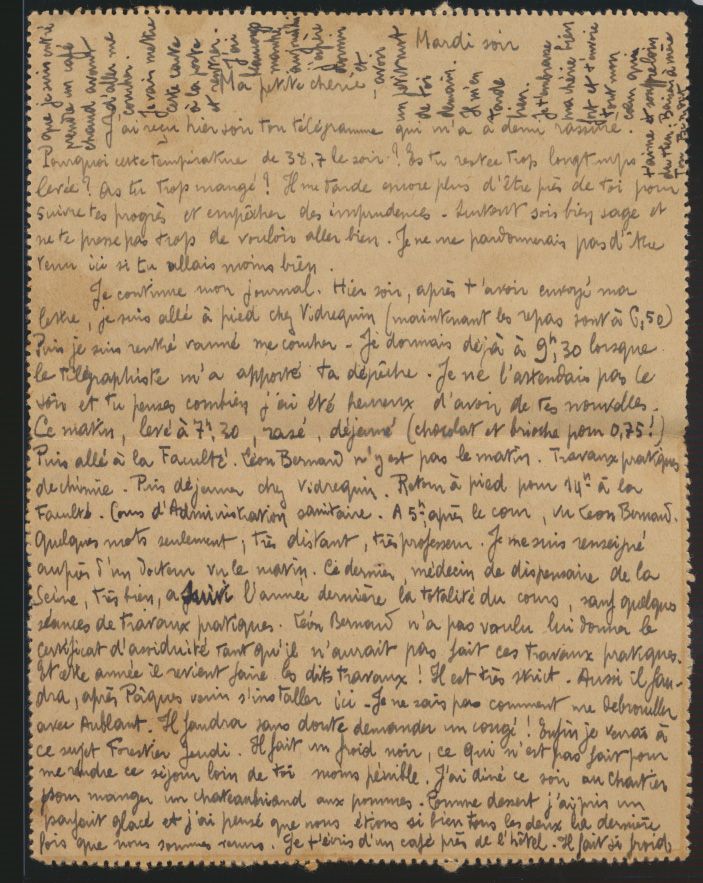 Mardi soir
Ma petite chérie,
J'ai reçu hier soir ton télégramme qui m'a à demi rassuré.
Pourquoi cette température de 38,7 le soir ? Es tu restée trop longtemps
levée ? As tu trop mangé ? Il me tarde encore plus d'être près de toi pour
suivre tes progrès et empêcher des imprudences. Surtout sois bien sage et
ne te presse pas trop de vouloir aller bien. Je ne me pardonnerais pas d'être
venu ici si tu allais moins bien.
Je continue mon journal. Hier soir, après t'avoir envoyé ma
lettre, je suis allé à pied chez Vidrequin (maintenant les repas sont à 6,50)
Puis je suis rentré vanné me coucher. Je dormais déjà à 9h,30 lorsque
le télégraphiste m'a apporté ta dépêche. Je ne l'attendais pas ce
soir et tu penses combien j'ai été heureux d'avoir de tes nouvelles.
Ce matin, levé à 7h,30, rasé, déjeuné (chocolat et brioche pour 0,75 !)
Puis allé à la Faculté. Léon Bernard n'y est pas le matin. Travaux pratiques
de chimie. Puis déjeuner chez Vidrequin. Retour à pied pour 14h à la
Faculté. Cours d'Administration sanitaire. A 5h, après le cour, vu Léon Bernard.
Quelques mots seulement, très distant, très professeur. Je me suis renseigné
auprès d'un Docteur vu le matin. Ce dernier, médecin de dispensaire de la
Seine, très bien, a suivi l'année dernière la totalité du cours, sauf quelques
séances de travaux pratiques. Léon Bernard n'a pas voulu lui donner le
certificat d'assiduité tant qu'il n'aurait pas fait ces travaux pratiques.
Et cette année il revient faire les dits travaux ! Il est très strict. Aussi il fau-
dra, après Pâques venir s'installer ici. Je ne sais pas comment me débrouiller
avec Aublant. Il faudra sans doute demander un congé ! Enfin je verrai à
ce sujet Forestier Jeudi. Il fait un froid noir, ce qui n'est pas fait pour
me rendre ce séjour loin de toi moins pénible. J'ai diné ce soir au Chartier
pour manger un chateaubriand aux pommes. Comme dessert j'ai pris un
parfait glacé et j'ai pensé que nous étions si bien tous les deux la dernière
fois que nous sommes venus. Je t'écris d'un café près de l'hôtel. Il fait si froid
que je suis entré
prendre un café
chaud avant
d'aller me
coucher.
Je vais mettre
cette carte
à la poste
et rentrer.
J'ai
beaucoup
marché
aujourd'hui
espère
dormir
et
avoir
un mot
de toi
demain.
Il m'en
tarde
bien.
Je t'embrasse
ma chérie bien
fort et t'envoie
tout mon
cœur qui
t'aime et souffre loin
du tien. Baisers à mère